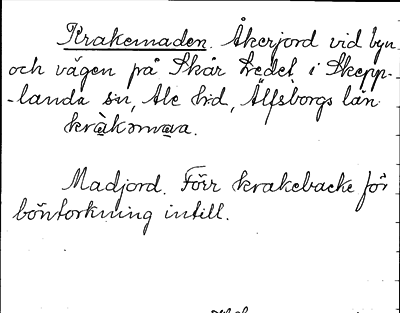 Krakemaden. Åkerjord vid byn
och vägen på Skår Nedel i Skepp-
-landa sn, Ale hd, Älfsborgs län
kràkəmaa.
Madjord. Förr krakebacke för
böntorkning intill.